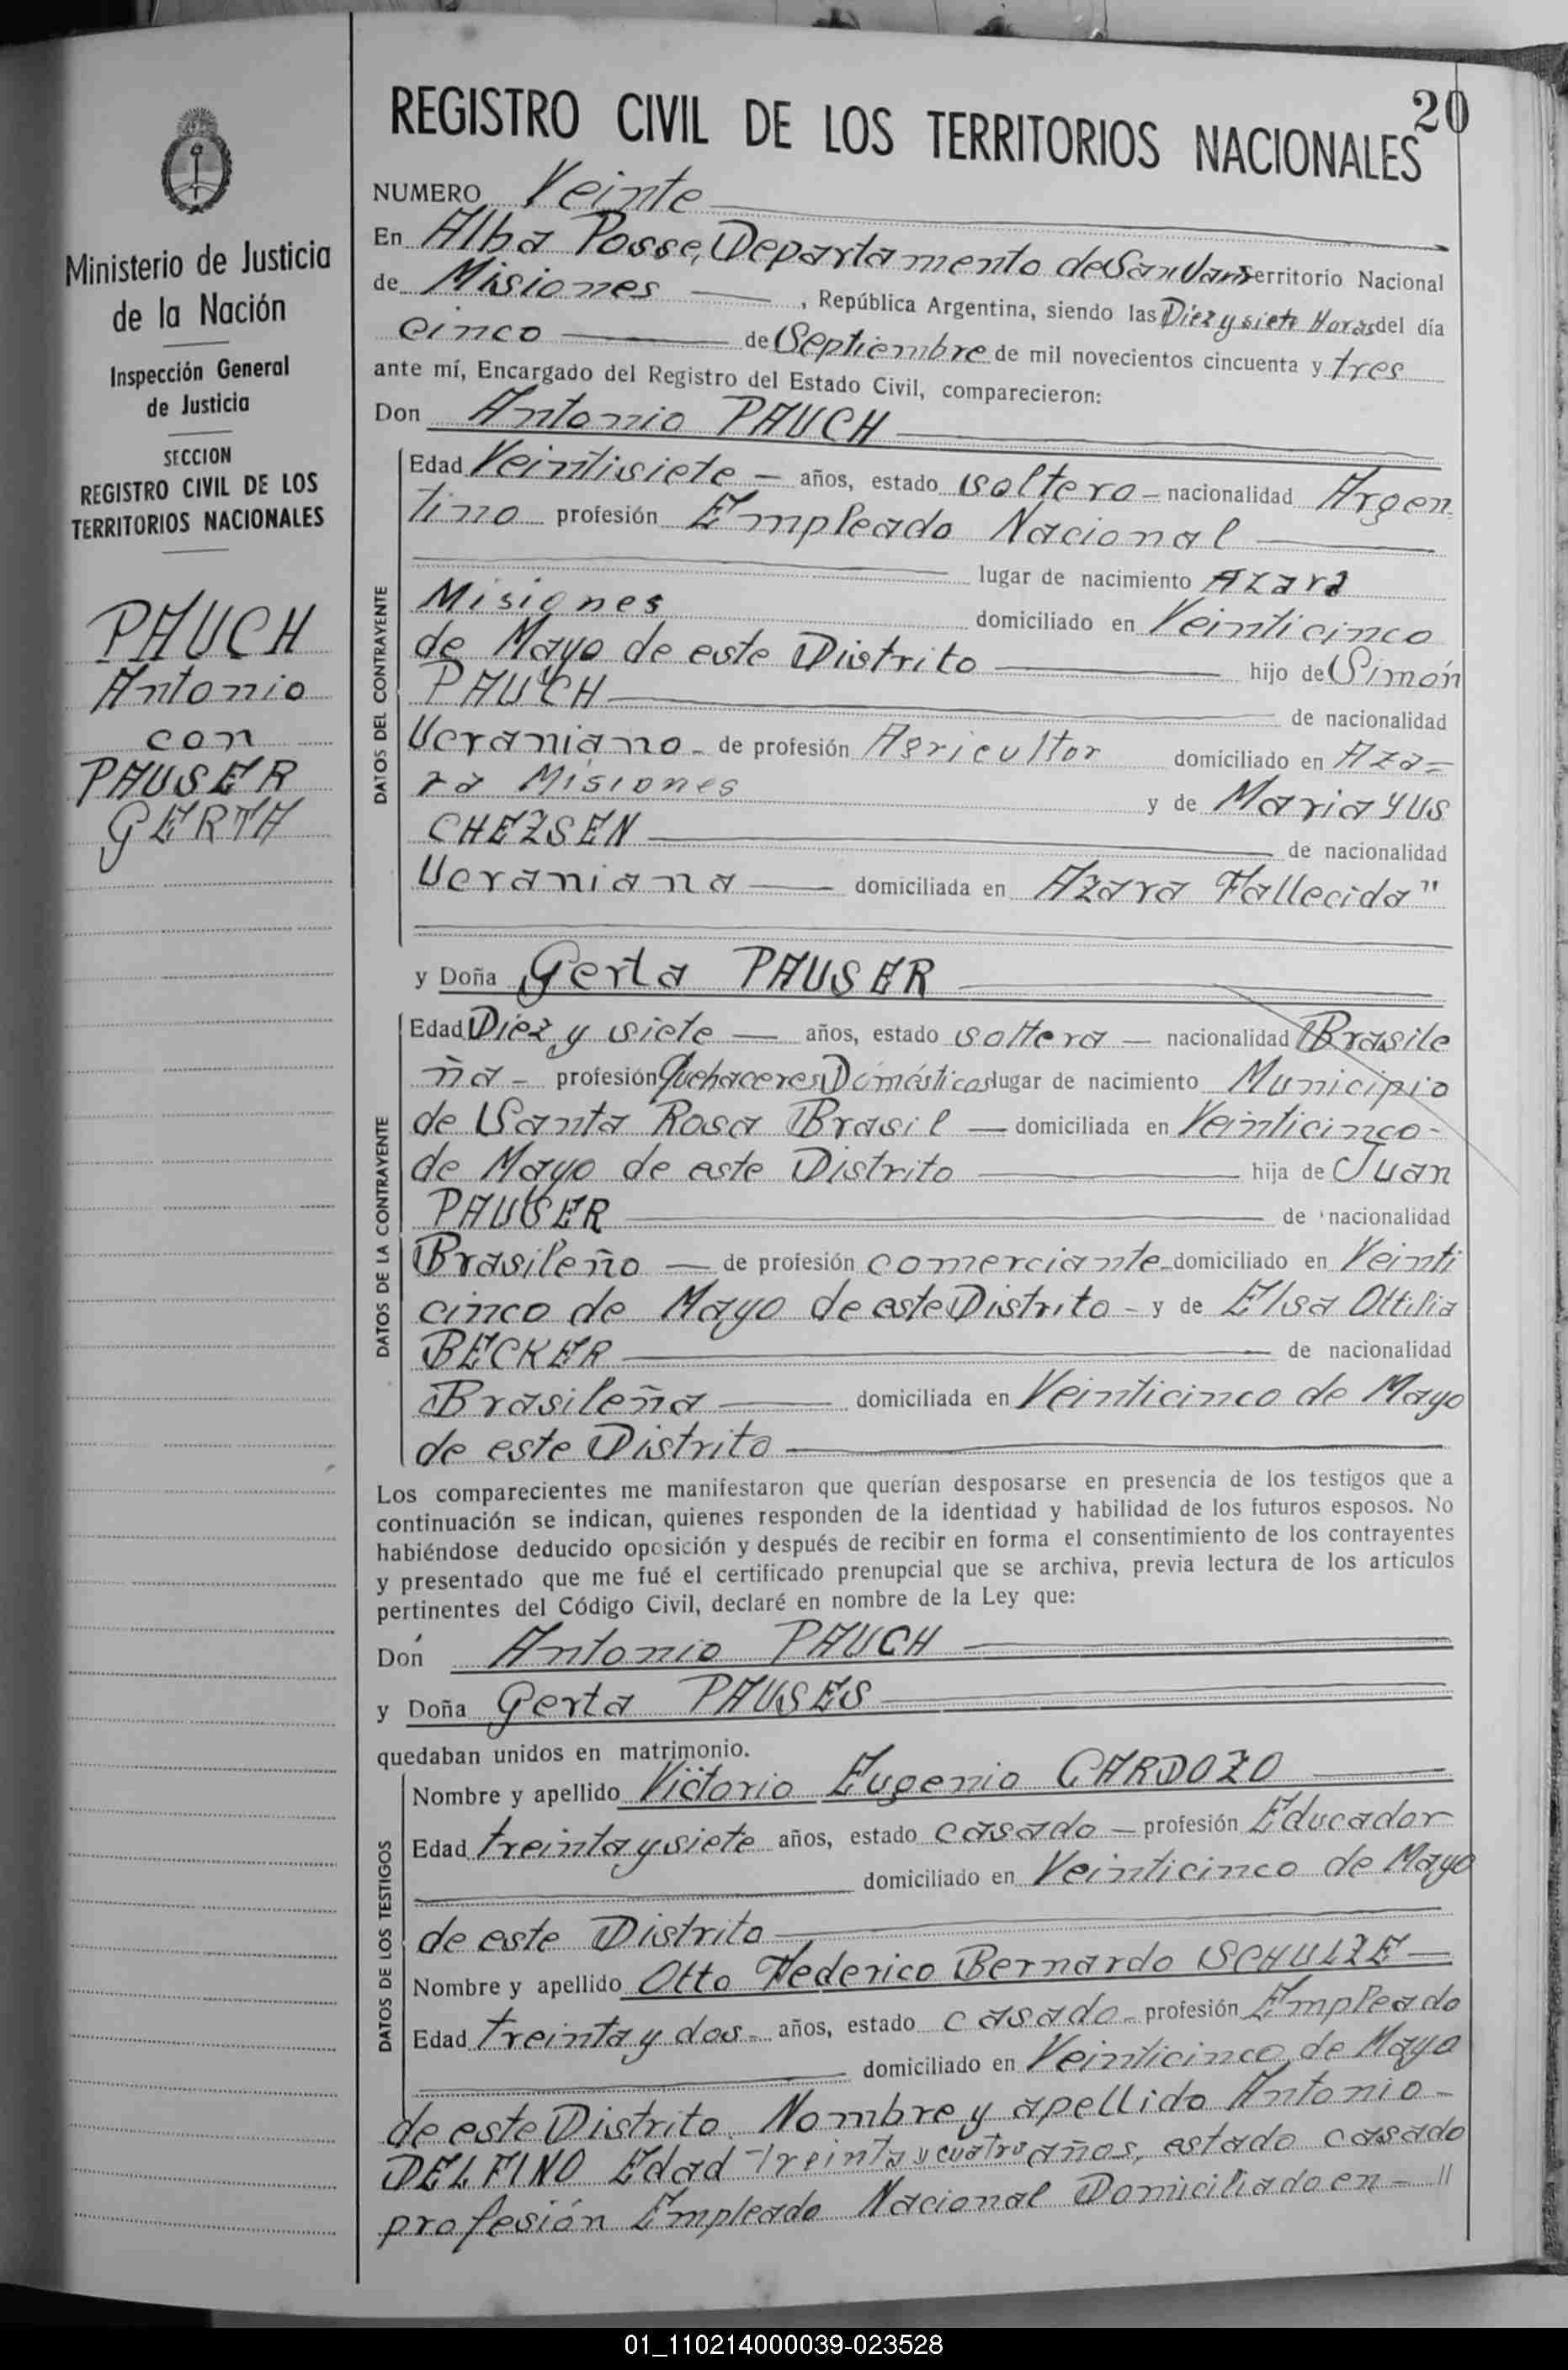 20
REGISTRO CIVIL DE LOS TERRITORIOS NACIONALES
Ministerio de Justicia
de la Nación
Inspección General
de Justicia
SECCION
REGISTRO CIVIL DE LOS
TERRITORIOS NACIONALES
PAUCH
Antonio
con
PAUSER
GERTA
NUMERO Veinte
En Alba Posse, Departamento de San Territorio Nacional
de Misiones , República Argentina, siendo las Diez y siete Horas del día
cinco de Septiembre de mil novecientos cincuenta y tres
ante mí, Encargado del Registro del Estado Civil, comparecieron:
Don Antonio PAUCH
DATOS DEL CONTRAYENTE
Edad Veintisiete – años, estado soltero – nacionalidad Argen
tino profesión Empleado Nacional
lugar de nacimiento Azara
Misiones domiciliado en Veinticinco
de Mayo de este Distrito hijo de Simón
PAUCH de nacionalidad
Ucraniano – de profesión Agricultor domiciliado en Aza=
ra Misiones y de Maria YUS
CHEZSEN de nacionalidad
Ucraniana domiciliada en Azara Fallecida"
y Doña Gerta PAUSER
DATOS DE LA CONTRAYENTE
Edad Diez y siete — años, estado soltera — nacionalidad Brasile
ña – profesión Quehaceres Domésticos lugar de nacimiento Municipio
de Santa Rosa Brasil — domiciliada en Veinticinco -
de Mayo de este Distrito hija de Juan
PAUSER de nacionalidad
Brasileño — de profesión comerciante domiciliado en Veinti
cinco de Mayo de este Distrito – y de Elsa Ottilia
BECKER de nacionalidad
Brasileña domiciliada en Veinticinco de Mayo
de este Distrito
Los comparecientes me manifestaron que querían desposarse en presencia de los testigos que a
continuación se indican, quienes responden de la identidad y habilidad de los futuros esposos. No
habiéndose deducido oposición y después de recibir en forma el consentimiento de los contrayentes
y presentado que me fué el certificado prenupcial que se archiva, previa lectura de los artículos
pertinentes del Código Civil, declaré en nombre de la Ley que:
Don Antonio PAUCH
y Doña Gerta PAUSES
quedaban unidos en matrimonio.
DATOS DE LOS TESTIGOS
Nombre y apellido Victorio Eugenio CARDOZO
Edad treinta y siete años, estado casado – profesión Educador
domiciliado en Veinticinco de Mayo
de este Distrito
Nombre y apellido Otto Federico Bernardo SCHULZE —
Edad treinta y dos – años, estado casado – profesión Empleado
domiciliado en Veinticinco de Mayo
de este Distrito. Nombre y apellido Antonio –
DELFINO Edad Treinta y cuatro años, estado casado
profesión Empleado Nacional Domiciliado en – "
01_110214000039-023528